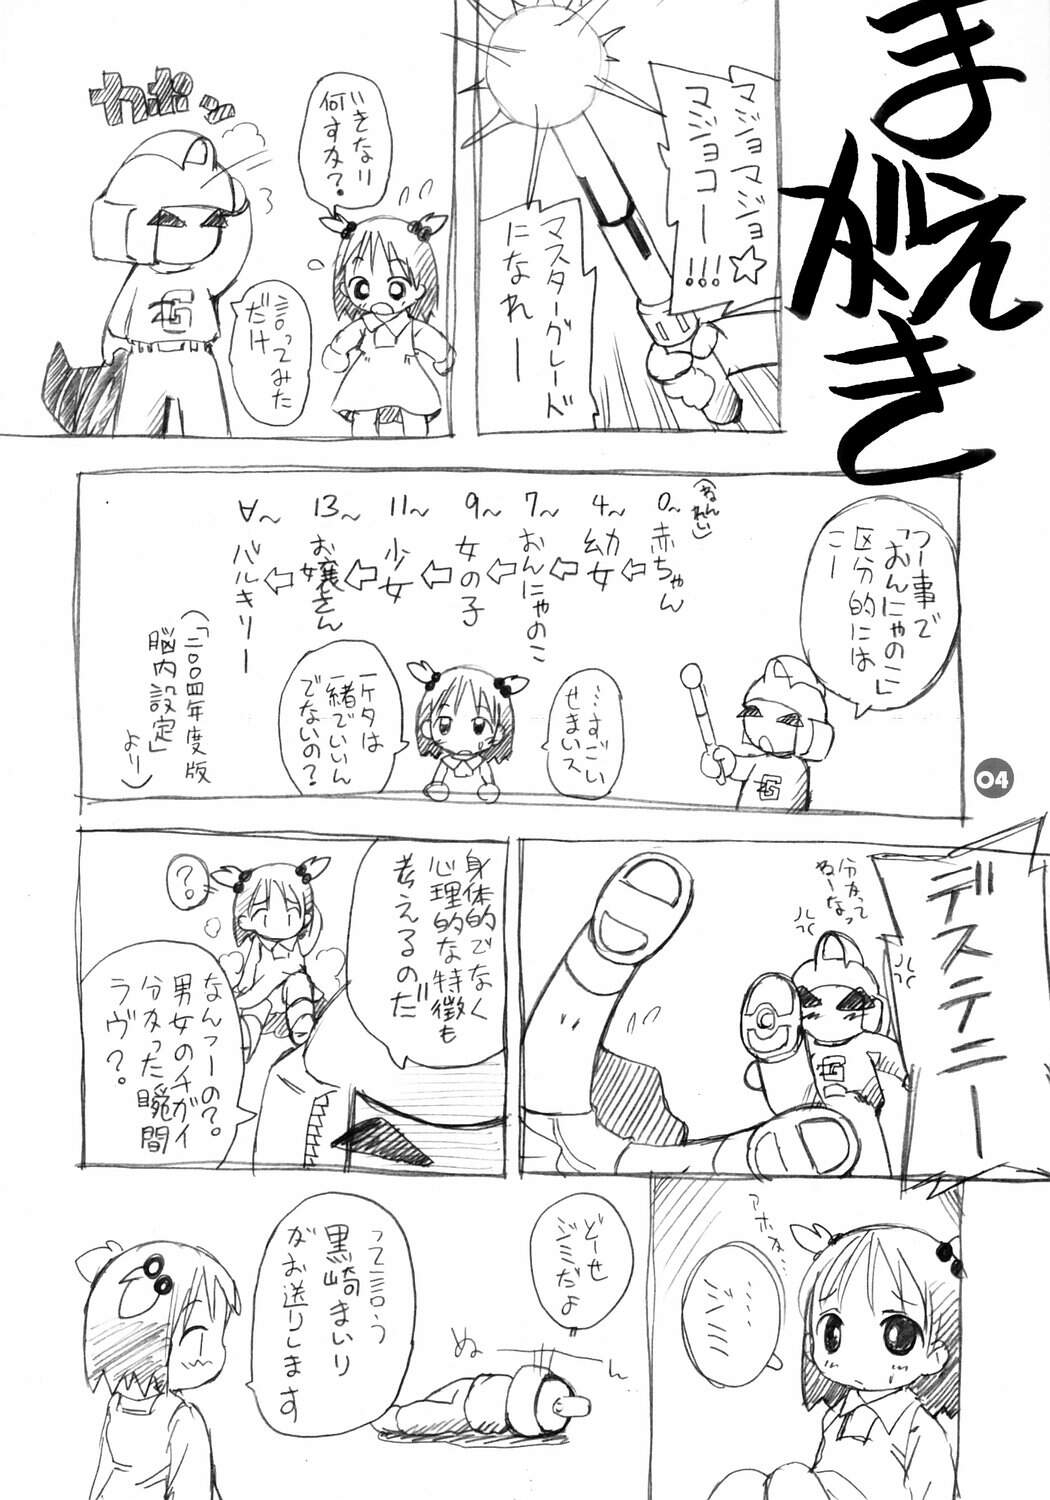 まがえき
マジョマジョ
マジョコー!!!☆
マスターグレード
になれー
いきなり
何すか?
カポッ
言ってみた
だけ
つー事で
「おんにゃのこ」
区分的には
こー
(ねんれい)
0~赤ちゃん
4~幼女
7~おんにゃのこ
9~女の子
11~少女
13~お嬢さん
∀~バルキリー
(「二〇〇四年度版
脳内設定」
より)
…すごい
せまいス
一ケタは
一緒でいいん
でないの?
04
デスティニー
分かって
ねーなっ
身体的でなく
心理的な特徴も
考えるのだ!!
?
なんつーの?
男女のチガイ
分かった瞬間
ラヴ?
アホか…
ジミ
どーせ
ジミだよ
ぬーん
って言う
黒崎まいり
がお送りします